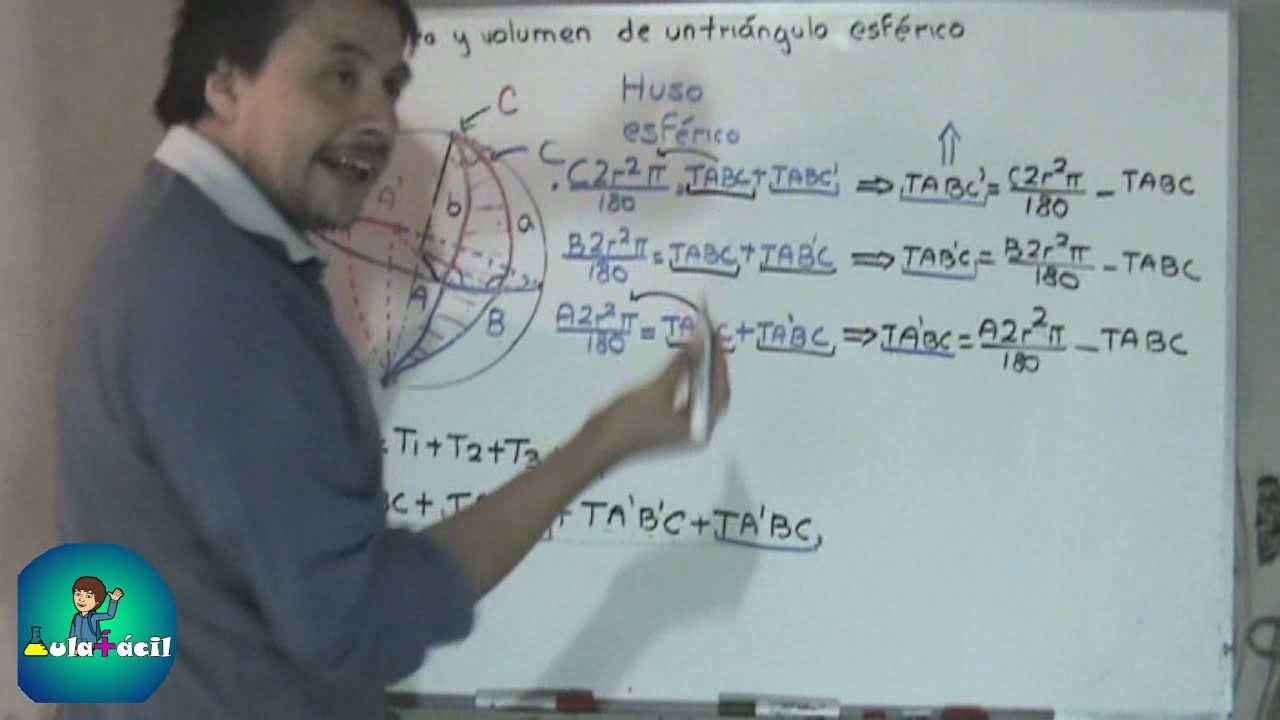 y volumen de un triángulo esférico
Huso
esférico
C
C
A'
b
a
A
B
C2r²π/180 = TABC + TABC' ⇒ TABC' = C2r²π/180 - TABC
B2r²π/180 = TABC + TAB'C ⇒ TAB'C = B2r²π/180 - TABC
A2r²π/180 = TA C + TA'BC ⇒ TA'BC = A2r²π/180 - TABC
T1 + T2 + T3
C + + TA'B'C + TA'BC
Aulafácil